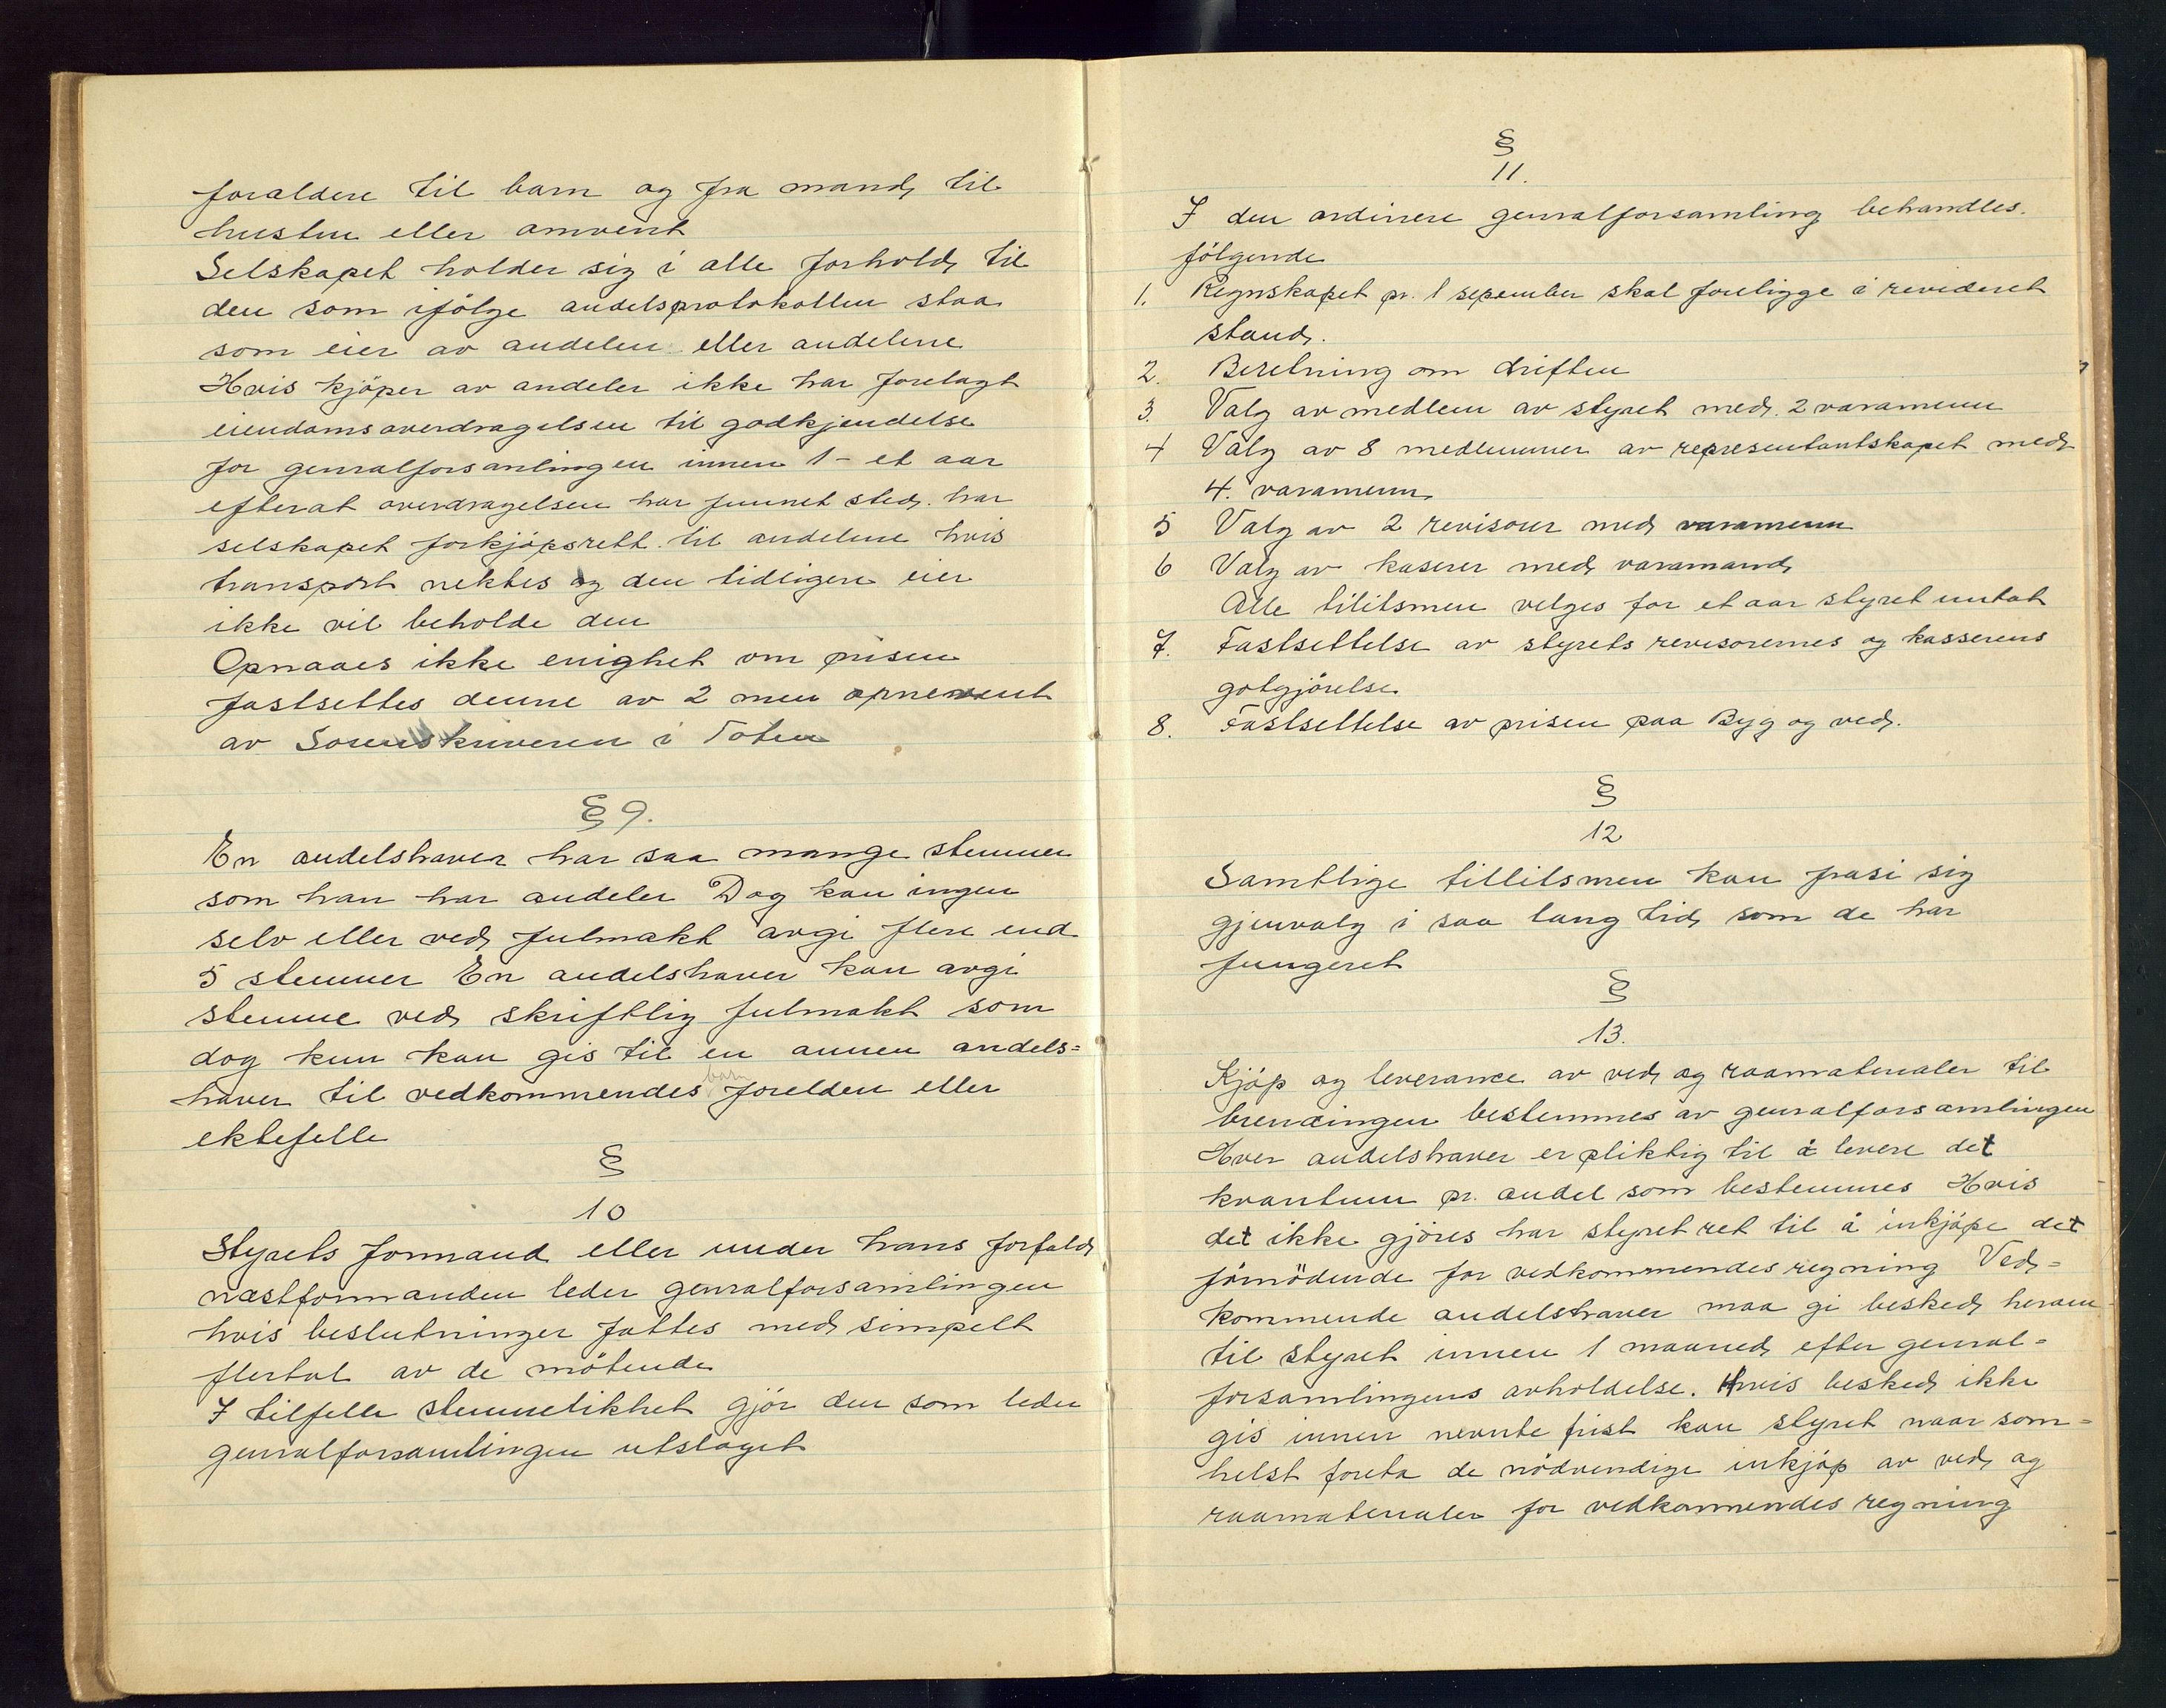 foraldere til barn og fra mand til
hustru eller omvent
Selskapet holder sig i alle forhold til
den som ifølge andelsprotokollen staa
som eier av andelen eller andelene
Hvis kjöper av andeler ikke har forelagt
eiendomsoverdragelsen til godkjendelse
for genralforsamlingen innen 1 - et aar
efterat overdragelsen har funnet sted. har
selskapet forkjöpsrett til andelene hvis
transport nektes og den tidligere eier
ikke vil beholde den
Opnaaes ikke enighet om prisen
fastsettes denne av 2 men opnevnt
av Sorenskriveren i Toten
§ 9.
En andelshaver har saa mange stemmer
som han har andeler Dog kan ingen
selv eller ved fulmakt avgi flere end
5 stemmer En andelshaver kan avgi
stemme ved skriftlig fulmakt som
dog kun kan gis til en annen andels=
barn
haver til vedkommendes foreldre eller
ektefelle
§
10
Styrets formand eller under hans forfald
næstformanden leder genralforsamlingen
hvis beslutninger fattes med simpelt
flertal av de mötende
I tilfelle stemmelikhet gjör den som leder
genralforsamlingen utslaget
§
11.
I den ordinere genralforsamling behandles.
fölgende
1. Regnskapet pr. 1 sepember skal foreligge i revideret
stand.
2. Beretning om driften
3. Valg av medlem av styret med. 2 varamenn
4 Valg av 8 medlemmer av representantskapet med
4. varamenn
5 Valg av 2 revisorer med varamenn
6 Valg av kaserer med varamand
Alle tilitsmen velges for et aar styret untat
7. Fastsettelse av styrets revisorernes og kasserens
gotgjörelse
8. Fastsettelse av prisen paa Byg og ved.
§
12
Samtlige tillitsmen kan frasi sig
gjenvalg i saa lang tid som de har
fungeret
§
13.
Kjöp og leverance av ved og raamaterialer til
brendingen bestemmes av genralforsamlingen
Hver andelshaver er pliktig til å levere det
kvantum pr. andel som bestemmes Hvis
det ikke gjöres har styret ret til å inkjöpe det
fornödende for vedkommendes regning Ved=
kommende andelshaver maa gi besked herom
til styret innen 1 maaned efter genral=
forsamlingens avholdelse. Hvis besked ikke
gis innen nevnte frist kan styret naar som=
helst foreta de nödvendige inkjöp av ved og
raamaterialer for vedkommendes regning